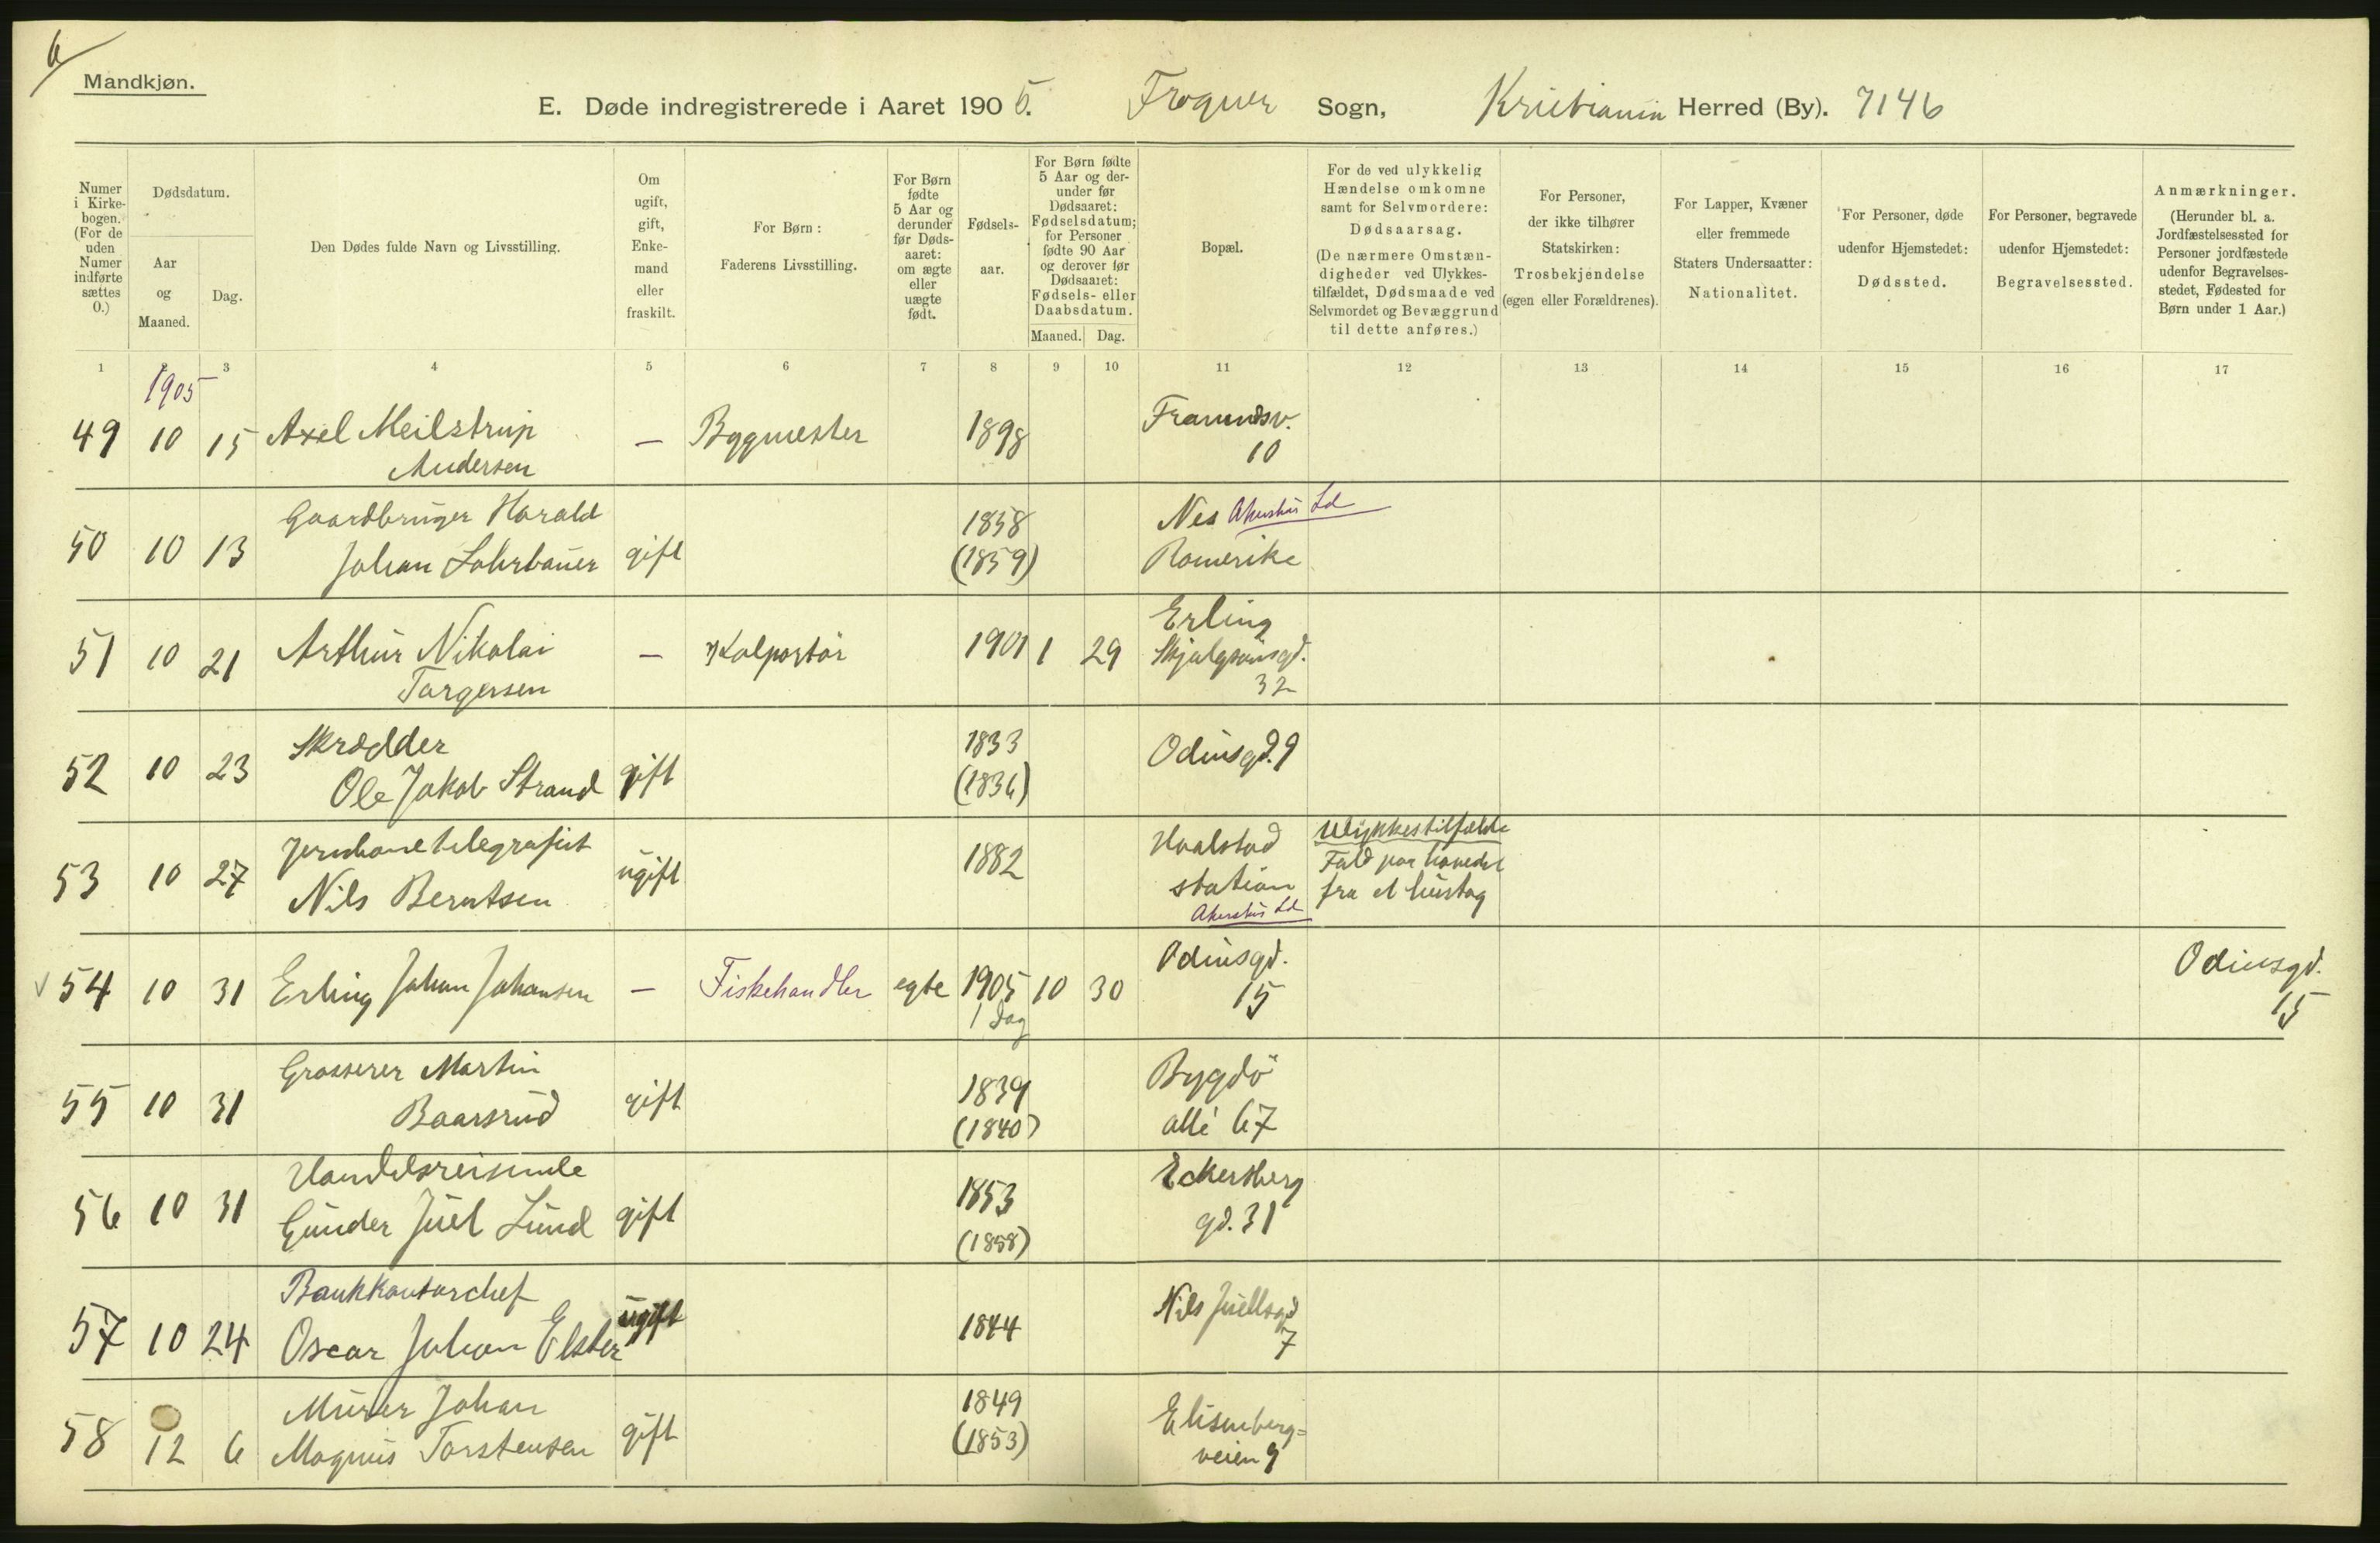 6
Mandkjøn.
E. Døde indregistrerede i Aaret 1905. Frogner Sogn, Kristiania Herred (By). 7146
Numer i Kirkebogen. (For de uden Numer indførte sættes 0.)
Dødsdatum.
Aar og Maaned.
Dag.
Den Dødes fulde Navn og Livsstilling.
Om ugift, gift, Enkemand eller fraskilt.
For Børn: Faderens Livsstilling.
For Børn fødte 5 Aar og derunder før Dødsaaret: om ægte eller uægte født.
Fødselsaar.
For Børn fødte 5 Aar og derunder før Dødsaaret: Fødselsdatum; for Personer fødte 90 Aar og derover før Dødsaaret: Fødsels- eller Daabsdatum.
Maaned. Dag.
Bopæl.
For de ved ulykkelig Hændelse omkomne samt for Selvmordere: Dødsaarsag.
(De nærmere Omstændigheder ved Ulykkestilfældet, Dødsmaade ved Selvmordet og Bevæggrund til dette anføres.)
For Personer, der ikke tilhører Statskirken: Trosbekjendelse (egen eller Forældrenes).
For Lapper, Kvæner eller fremmede Staters Undersaatter: Nationalitet.
For Personer, døde udenfor Hjemstedet: Dødssted.
For Personer, begravede udenfor Hjemstedet: Begravelsessted.
Anmærkninger.
(Herunder bl. a. Jordfæstelsessted for Personer jordfæstede udenfor Begravelsesstedet, Fødested for Børn under 1 Aar.)
1 2 3 4 5 6 7 8 9 10 11 12 13 14 15 16 17
1905
49 10 15 Axel Meilstrup — Bygmester 1898
Andersen
10
50 10 13 Gaardbruger Harald gift 1858 Nes Akershus Ld
Johan Lohrbauer (1859) Romerike
51 10 21 Arthur Nikolai — Kolportør 1901 1 29 Erling
Torgersen Skjalgsønsgd.
32
52 10 23 Skrædder gift 1833 Odinsgd. 9
Ole Jakob Strand (1836)
53 10 27 Jernbanetelegrafist ugift 1882 station Ulykkestilfælde
Nils Berntsen Akershus Ld Fald paa hovedet
fra et hustag
54 10 31 Erling Johan Johansen — Fiskehandler egte 1905 10 30 Odinsgd. Odinsgd.
1 dag 15 15
55 10 31 Grosserer Martin gift 1839 Bygdö
Baarsrud (1840) allé 67
56 10 31 Handelsreisende gift 1853 Eckersberg
Gunder Juel Lund (1858) gd. 31
57 10 24 Bankkontorchef ugift 1844 Nils Juellsgd
Oscar Johan Elster 7
58 12 6 Murer Johan gift 1849 Elisenberg=
Magnus Torstensen (1853) veien 9